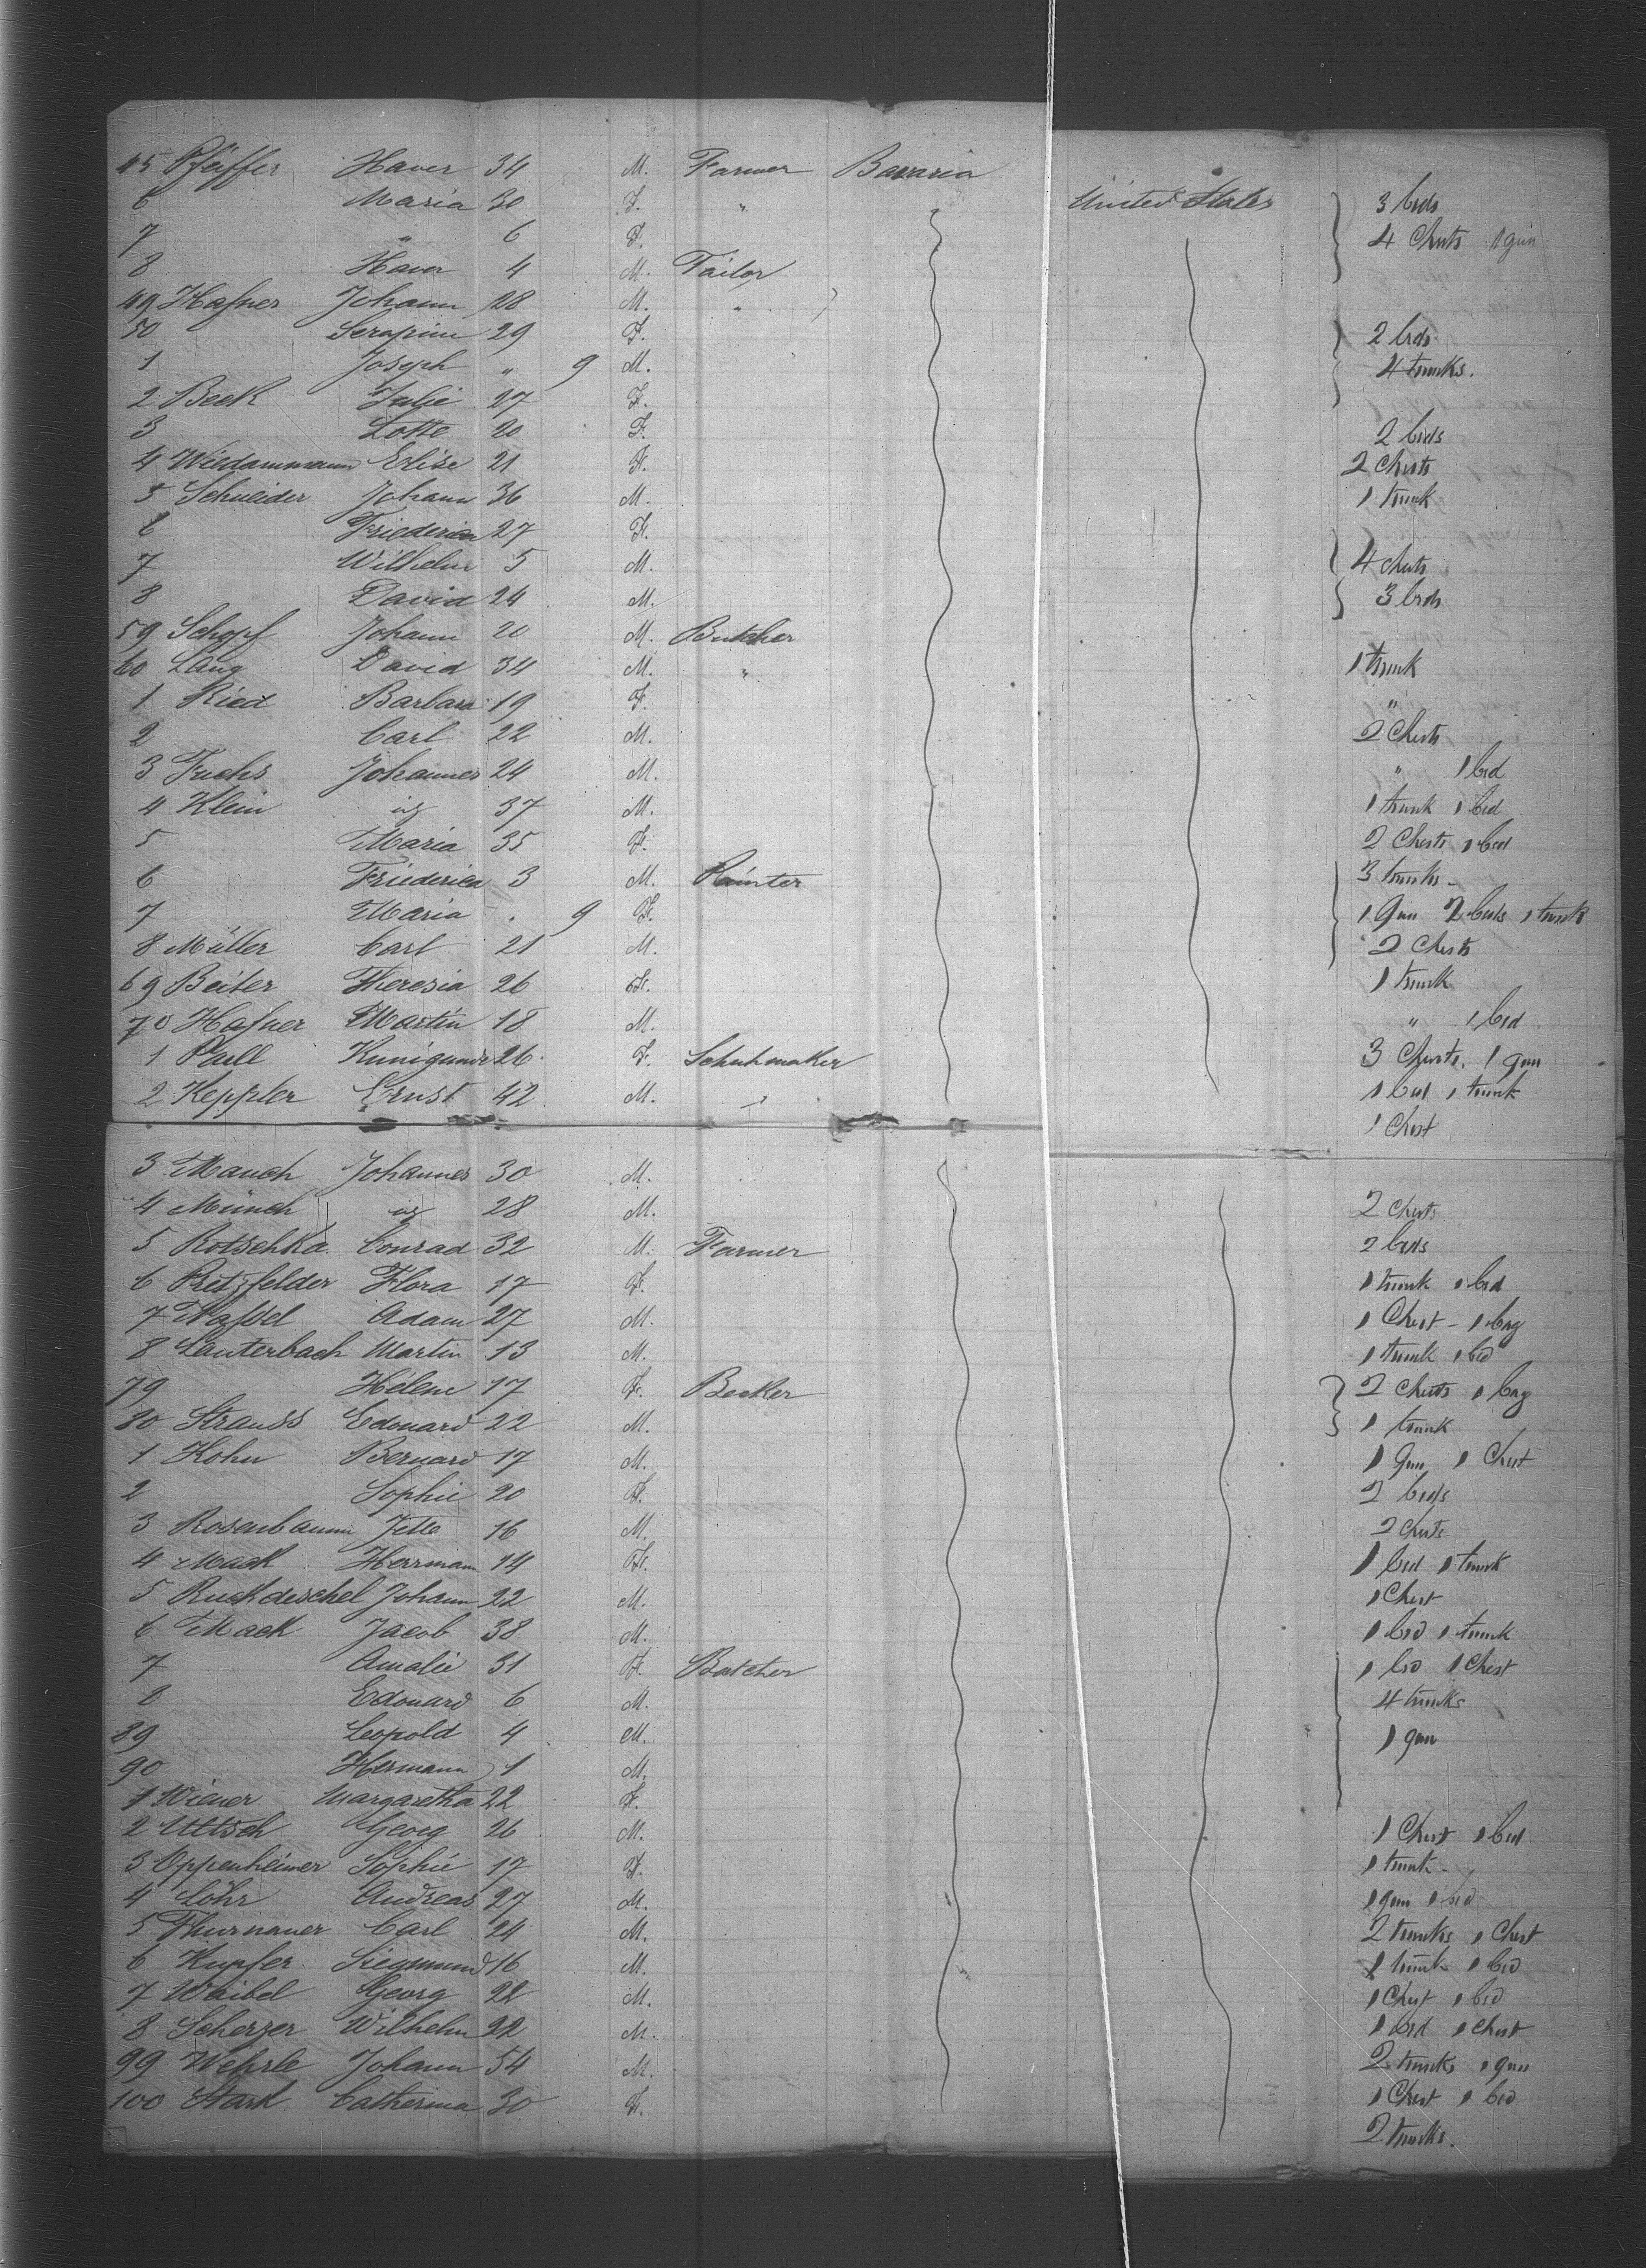 45 Pfeiffer Xaver 34 M. Farmer Bavaria
6 Maria 30 F. " United States 3 beds
7 " 6 F. 4 Chests 1 gun
8 Xaver 4 M. Tailor
49 Hafner Johann 28 M. "
50 Serapina 29 F. 2 beds
1 Joseph " 9 M. 4 trunks.
2 Beck Julie 27 F.
3 Lotte 20 F. 2 beds
4 Wiedammann Elise 21 F. 2 Chests
5 Schneider Johann 36 M. 1 trunk
6 Friederica 27 F.
7 Wilhelm 5 M. 4 chests
8 David 24 M. 3 beds
59 Schopf Johann 20 M. Butcher
60 Lang David 34 M. " 1 trunk
1 Ried Barbara 19 F. "
2 Carl 22 M. 2 Chests
3 Fuchs Johannes 24 M. " 1 bed
4 Klein " 37 M. 1 trunk 1 bed
5 Maria 35 F. 2 Chests 1 bed
6 Friederica 3 M. Painter 3 trunks
7 Maria . 9 F. 1 Gun 2 beds 1 trunk
8 Müller Carl 21 M. 2 Chests
69 Beiter Theresia 26 F. 1 trunk
70 Hafner Martin 18 M. " 1 bed
1 Paell Kunigunde 26 F. Schuhmaker 3 Chests, 1 gun
2 Keppler Ernst 42 M. 1 bed 1 trunk
1 Chest
3 Mauch Johannes 30 M.
4 Münch " 28 M. 2 Chests
5 Rotschka Conrad 32 M. Farmer 2 beds
6 Pretzfelder Flora 17 F. 1 trunk 1 bed
7 Nassel Adam 27 M. 1 Chest - 1 bag
8 Lauterbach Martin 13 M. 1 trunk 1 bed
79 Hélene 17 F. Becker 2 Chests 1 bag
80 Strauss Edouard 22 M. 1 trunk
1 Kohn Bernard 17 M. 1 Gun 1 Chest
2 Sophie 20 F. 2 beds
3 Rosenbaum Jette 16 M. 2 Chests
4 Mack Herrmann 14 F. 1 bed 1 trunk
5 Ruckdeschel Johann 22 M. 1 Chest
6 Mack Jacob 38 M. 1 bed 1 trunk
7 Amalie 31 F. Butcher 1 bed 1 Chest
8 Edouard 6 M. 4 trunks
89 Leopold 4 M. 1 gun
90 Hermann 1 M.
1 Wiener Margaretha 22 F.
2 Uttsch Georg 26 M. 1 Chest 1 bed
3 Oppenheimer Sophie 17 F. 1 trunk
4 Löhr Andreas 27 M. 1 gun 1 bed
5 Thurnauer Carl 24 M. 2 trunks 1 Chest
6 Kupfer Siegmund 16 M. 1 trunk 1 bed
7 Waibel Georg 22 M. 1 Chest 1 bed
8 Scherzer Wilhelm 22 M. 1 bed 1 chest
99 Wehrle Johann 54 M. 2 trunks 1 gun
100 Stark Catherina 30 F. 1 Chest 1 bed
2 trunks.